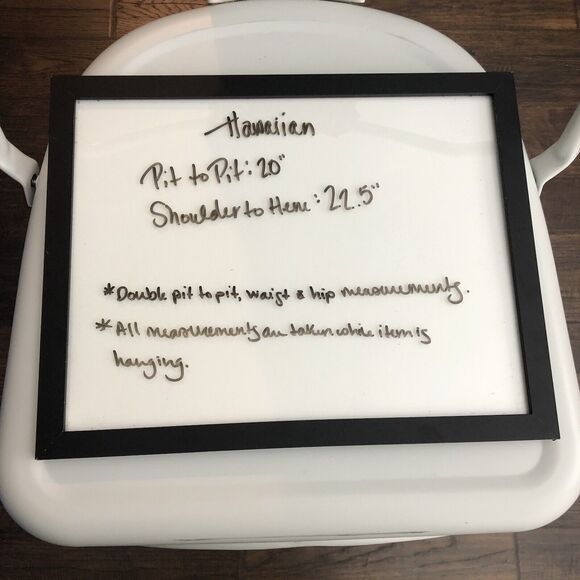 Hawaiian
Pit to Pit: 20"
Shoulder to Hem: 22.5"
*Double pit to pit, waist & hip measurements.
*All measurements are taken while item is
hanging.